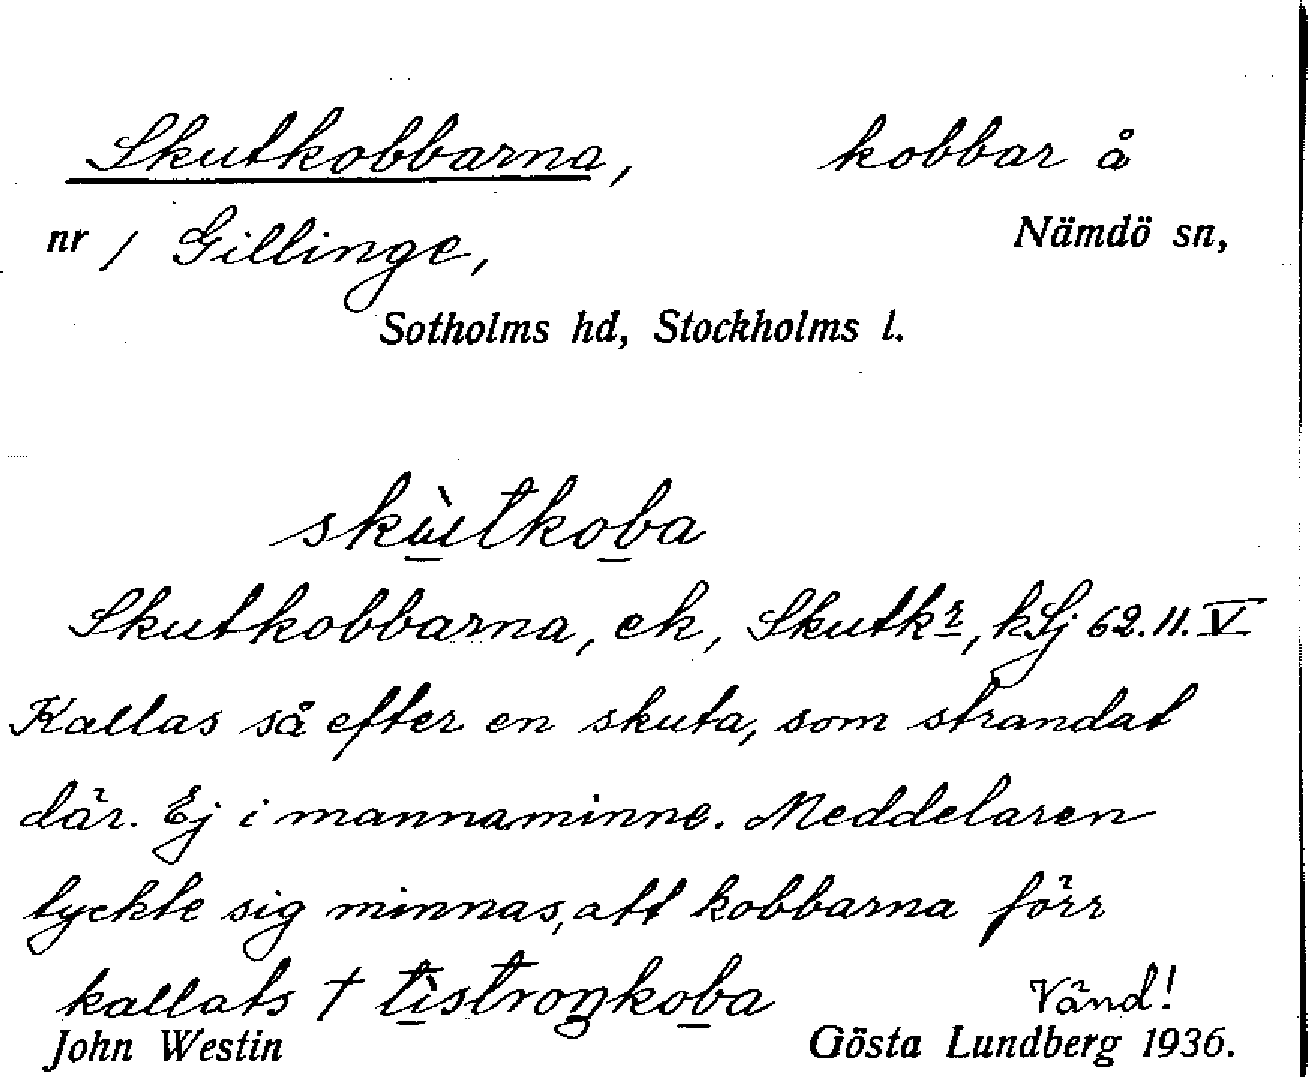 Skutkobbarna, kobbar å
nr 1 Gillinge, Nämdö sn,
Sotholms hd, Stockholms l.
skùtkoba
Skutkobbarna, ek, Skutkr, kSj 62.11.V
Kallas så efter en skuta, som strandat
där. Ej i mannaminne. Meddelaren
tyckte sig minnas, att kobbarna förr
kallats † tìstroŋkoba Vänd!
John Westin Gösta Lundberg 1936.